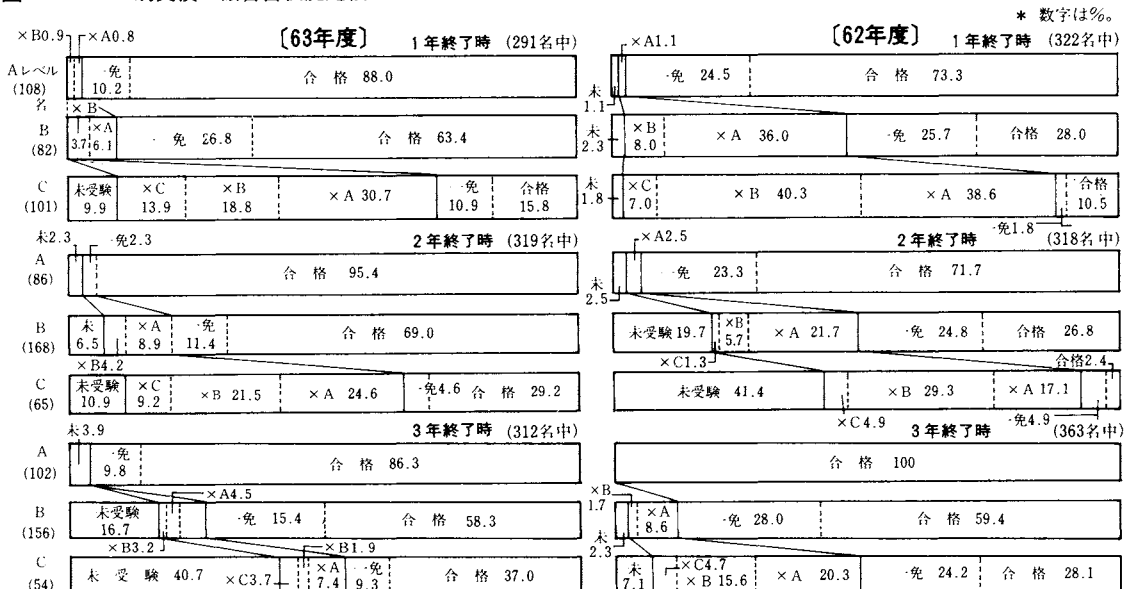 * 数字は%。
〔63年度〕 1年終了時 (291名中)
×B0.9 ×A0.8
Aレベル (108)名 ·免 10.2 合格 88.0
B (82) ×B 3.7 ×A 6.1 ·免 26.8 合格 63.4
C (101) 未受験 9.9 ×C 13.9 ×B 18.8 ×A 30.7 ·免 10.9 合格 15.8
2年終了時 (319名中)
A (86) 未2.3 ·免2.3 合格 95.4
B (168) 未 6.5 ×B4.2 ×A 8.9 ·免 11.4 合格 69.0
C (65) 未受験 10.9 ×C 9.2 ×B 21.5 ×A 24.6 ·免4.6 合格 29.2
3年終了時 (312名中)
A (102) 未3.9 ·免 9.8 合格 86.3
B (156) 未受験 16.7 ×B3.2 ×A4.5 ·免 15.4 合格 58.3
C (54) 未受験 40.7 ×C3.7 ×B1.9 ×A 7.4 ·免 9.3 合格 37.0
〔62年度〕 1年終了時 (322名中)
未 1.1 ×A1.1 ·免 24.5 合格 73.3
未 2.3 ×B 8.0 ×A 36.0 ·免 25.7 合格 28.0
未 1.8 ×C 7.0 ×B 40.3 ×A 38.6 ·免1.8 合格 10.5
2年終了時 (318名中)
未 2.5 ×A2.5 ·免 23.3 合格 71.7
未受験 19.7 ×C1.3 ×B 5.7 ×A 21.7 ·免 24.8 合格 26.8
未受験 41.4 ×C4.9 ×B 29.3 ×A 17.1 ·免4.9 合格2.4
3年終了時 (363名中)
合格 100
未 2.3 ×B 1.7 ×A 8.6 ·免 28.0 合格 59.4
未 7.1 ×C4.7 ×B 15.6 ×A 20.3 ·免 24.2 合格 28.1